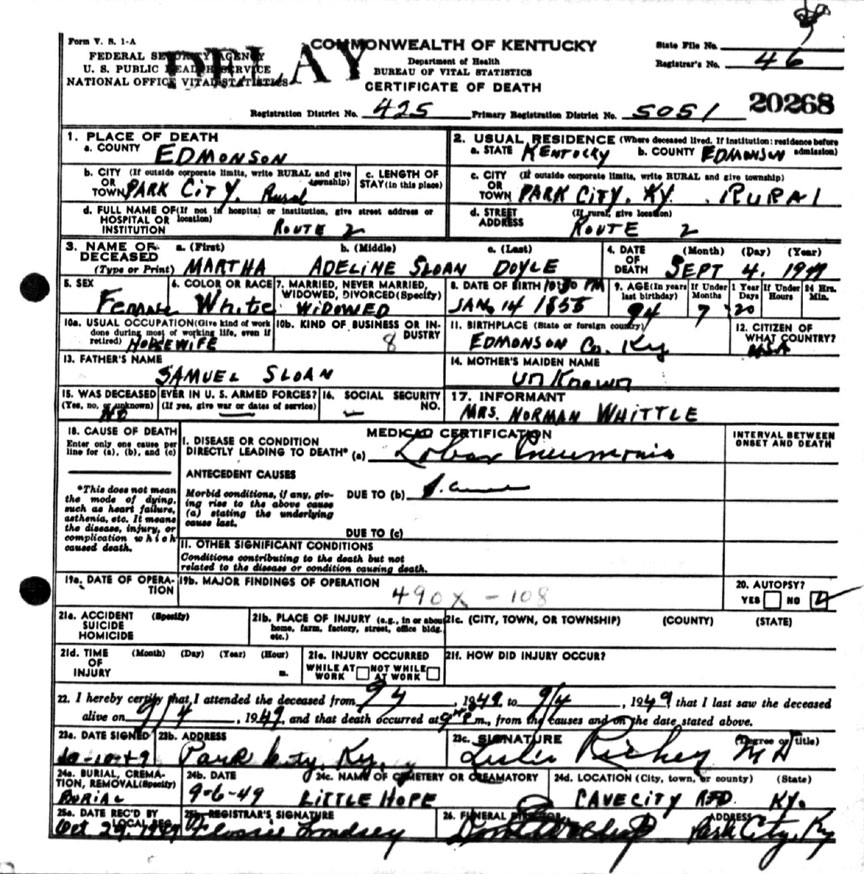 Form V. S. 1-A
FEDERAL SECURITY AGENCY
U. S. PUBLIC HEALTH SERVICE
NATIONAL OFFICE VITAL STATISTICS
DELAY
COMMONWEALTH OF KENTUCKY
Department of Health
BUREAU OF VITAL STATISTICS
CERTIFICATE OF DEATH
State File No.
Registrar's No. 46
Registration District No. 425 Primary Registration District No. 5051 20268
1. PLACE OF DEATH
a. COUNTY EDMONSON
2. USUAL RESIDENCE (Where deceased lived. If institution: residence before admission)
a. STATE KENTUCKY b. COUNTY EDMONSON
b. CITY (If outside corporate limits, write RURAL and give township)
OR TOWN PARK CITY. Rural
c. LENGTH OF STAY (in this place)
c. CITY (If outside corporate limits, write RURAL and give township)
OR TOWN PARK CITY, KY. RURAL
d. FULL NAME OF (If not in hospital or institution, give street address or location)
HOSPITAL OR INSTITUTION ROUTE 2
d. STREET ADDRESS (If rural, give location)
ROUTE 2
3. NAME OF DECEASED (Type or Print) a. (First) b. (Middle) c. (Last)
MARTHA ADELINE SLOAN DOYLE
4. DATE OF DEATH (Month) (Day) (Year)
SEPT 4. 1949
5. SEX
Female
6. COLOR OR RACE
White
7. MARRIED, NEVER MARRIED, WIDOWED, DIVORCED (Specify)
WIDOWED
8. DATE OF BIRTH 10:30 PM
JAN. 14 1855
9. AGE (In years last birthday) If Under 1 Year Months Days If Under 24 Hrs. Hours Min.
94 7 20
10a. USUAL OCCUPATION (Give kind of work done during most of working life, even if retired)
HOUSEWIFE
10b. KIND OF BUSINESS OR INDUSTRY
8
11. BIRTHPLACE (State or foreign country)
EDMONSON Co. Ky
12. CITIZEN OF WHAT COUNTRY?
USA
13. FATHER'S NAME
SAMUEL SLOAN
14. MOTHER'S MAIDEN NAME
unknown
15. WAS DECEASED EVER IN U. S. ARMED FORCES?
(Yes, no, or unknown) (If yes, give war or dates of service)
NO
16. SOCIAL SECURITY NO.
17. INFORMANT
MRS. NORMAN WHITTLE
18. CAUSE OF DEATH
Enter only one cause per line for (a), (b), and (c)
*This does not mean the mode of dying, such as heart failure, asthenia, etc. It means the disease, injury, or complication which caused death.
MEDICAL CERTIFICATION
INTERVAL BETWEEN ONSET AND DEATH
I. DISEASE OR CONDITION
DIRECTLY LEADING TO DEATH* (a) Lobar Pneumonia
ANTECEDENT CAUSES
Morbid conditions, if any, giving rise to the above cause (a) stating the underlying cause last.
DUE TO (b)
DUE TO (c)
II. OTHER SIGNIFICANT CONDITIONS
Conditions contributing to the death but not related to the disease or condition causing death.
19a. DATE OF OPERATION
19b. MAJOR FINDINGS OF OPERATION
490X - 108
20. AUTOPSY?
YES NO
21a. ACCIDENT SUICIDE HOMICIDE (Specify)
21b. PLACE OF INJURY (e.g., in or about home, farm, factory, street, office bldg. etc.)
21c. (CITY, TOWN, OR TOWNSHIP) (COUNTY) (STATE)
21d. TIME OF INJURY (Month) (Day) (Year) (Hour) m.
21e. INJURY OCCURRED
WHILE AT WORK NOT WHILE AT WORK
21f. HOW DID INJURY OCCUR?
22. I hereby certify that I attended the deceased from 9/4, 1949 to 9/4, 1949 that I last saw the deceased
alive on 9/4, 1949, and that death occurred at m., from the causes and on the date stated above.
23a. DATE SIGNED
10-10-49
23b. ADDRESS
Park City, Ky.
23c. SIGNATURE (Degree or title)
Leslie Richey MD
24a. BURIAL, CREMATION, REMOVAL (Specify)
BURIAL
24b. DATE
9-6-49
24c. NAME OF CEMETERY OR CREAMATORY
LITTLE HOPE
24d. LOCATION (City, town, or county) (State)
CAVE CITY RFD. KY.
25a. DATE REC'D BY LOCAL REG.
Oct 29, 1949
25b. REGISTRAR'S SIGNATURE
Flossie Lindsey
26. FUNERAL DIRECTOR ADDRESS
Park City, Ky